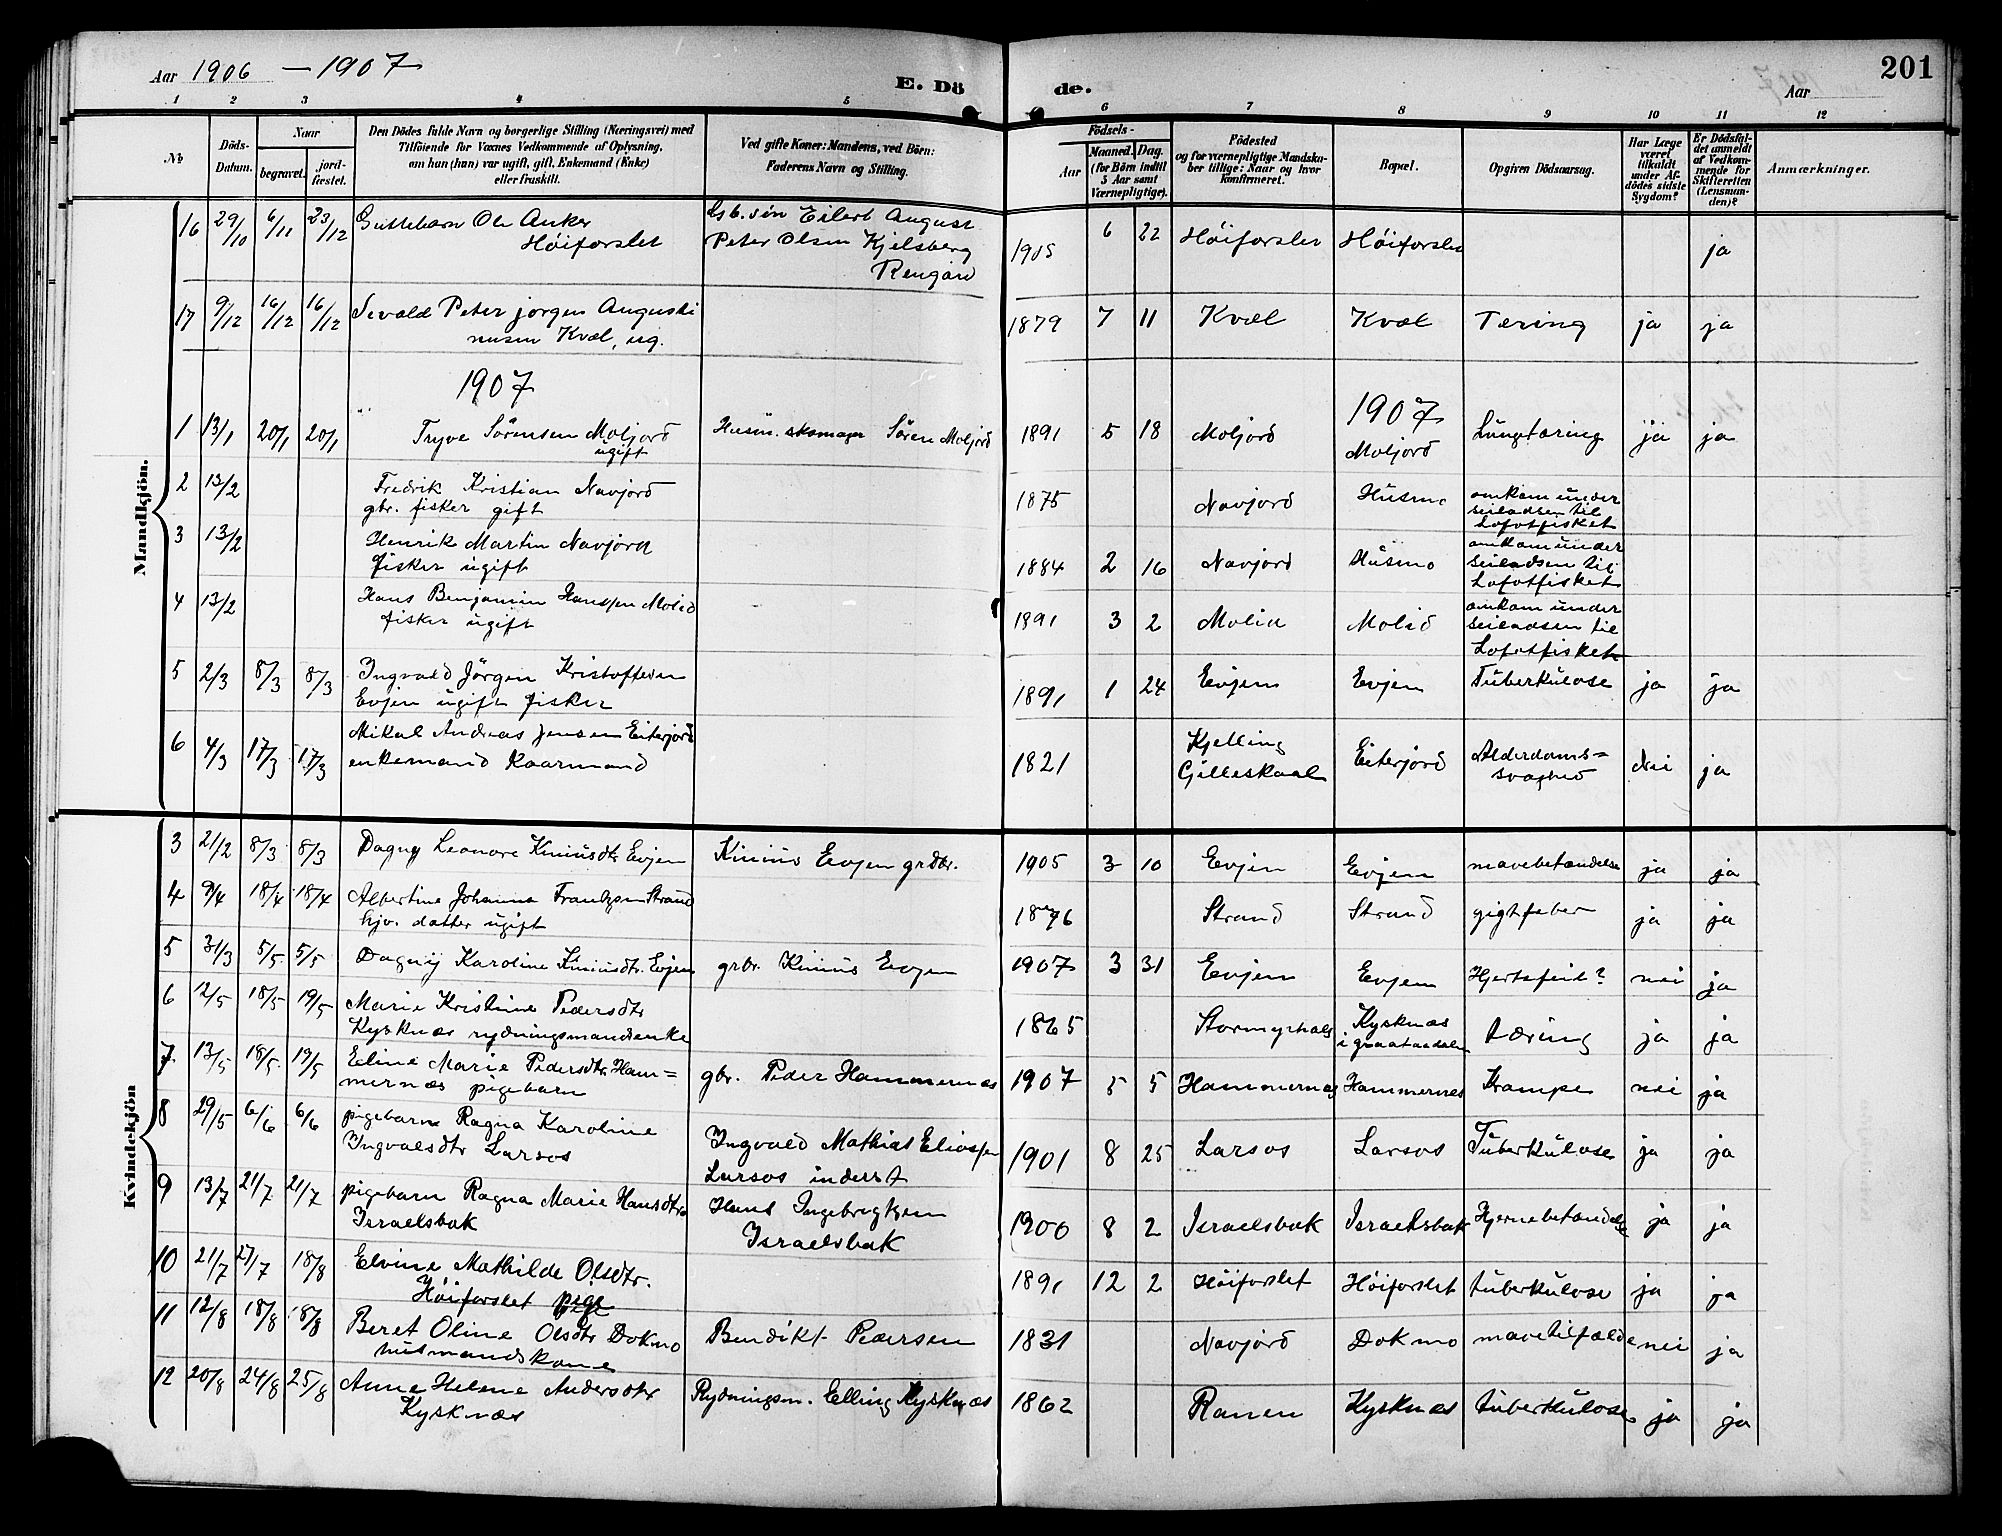 Aar 1906 – 1907
E. Dö
de.
201
Aar
1 2 3 4 5 6 7 8 9 10 11 12
No
Döds-Datum.
Naar
begravet.
jord-fæstet.
Den Dödes fulde Navn og borgerlige Stilling (Næringsvei) med
Tilföiende for Voxnes Vedkommende af Oplysning,
om han (hun) var ugift, gift, Enkemand (Enke)
eller fraskilt.
Ved gifte Koner: Mandens, ved Börn:
Faderens Navn og Stilling.
Födsels-
Aar
Maaned. Dag.
(for Börn indtil
5 Aar samt
Værnepligtige).
Födested
og for værnepligtige Mandska-
ber tillige: Naar og hvor
konfirmeret.
Bopæl.
Opgiven Dödsaarsag.
Har Læge
været
tilkaldt
under Af-
dödes sidste
Sygdom?
Er Dödsfal-
det anmeldt
af Vedkom-
mende for
Skifteretten
(Lensman-
den)?
Anmærkninger.
Mandkjön.
16 29/10 6/11 23/12 Guttebarn Ole Anker Gb. søn Eilert August 1905 6 22 Höiforslet Höiforslet ja
Höiforslet Peter Olsen Kjelsberg
Rengård
17 9/12 16/12 16/12 Sevald Peter Jørgen Augusti 1879 7 11 Kvæl Kvæl Tæring ja ja
nusen Kvæl, ug.
1907
1907
1 13/1 20/1 20/1 Tryve Sörensen Moljord Husm. skomager Sören Moljord 1891 5 18 Moljord Moljord Lungetæring ja ja
ugift
2 13/2 Fredrik Kristian Navjord 1875 Navjord Husmo omkom under
gbr. fisker gift seiladsen til
Lofotfisket
3 13/2 Henrik Martin Navjord 1884 2 16 Navjord Husmo omkom under
fisker ugift seiladsen til
Lofotfisket
4 13/2 Hans Benjamin Hanssen Molid 1891 3 2 Molid Molid omkom under
fisker ugift seiladsen til
Lofotfisket
5 2/3 8/3 8/3 Ingvald Jörgen Kristoffersen 1891 1 24 Evjen Evjen Tuberkulose ja ja
Evjen ugift fisker
6 4/3 17/3 17/3 Mikal Andreas Jensen Eiterjord 1821 Kjelling Eiterjord Alderdoms=
enkemand Kaarmand Gilleskaal svaghed Nei ja
Kvindekjön
3 21/2 8/3 8/3 Dagny Leonore Kiniusdtr Evjen Kinius Evjen grdbr. 1905 3 10 Evjen Evjen mavebetændelse ja ja
4 9/4 18/4 18/4 Albertine Johanna Frantzen Strand 1876 Strand Strand gigtfeber ja ja
hjv. datter ugift
5 31/3 5/5 5/5 Dagny Karoline Kiniusdtr. Evjen grbr. Kinius Evjen 1907 3 31 Evjen Evjen Hjertefeil? nei ja
6 12/5 18/5 19/5 Marie Kristine Pedersdtr 1865 Stormyrhals Kysknæs tæring ja ja
Kysknæs rydningsmandsenke i graataadalen
7 13/5 18/5 19/5 Eline Marie Pedersdtr. Ham= gbr. Peder Hammernæs 1907 5 5 Hammernæs Hammernes Krampe nei ja
mernæs pigebarn
8 29/5 6/6 6/6 pigebarn Ragna Karoline Ingvald Mathias Eliassen 1901 8 25 Larsos Larsos Tuberkulose ja ja
Ingvalsdtr Larsos Larsos inderst
9 13/7 21/7 21/7 pigebarn Ragna Marie Hansdtr. Hans Ingebrigtsen 1900 8 2 Israelsbak Israelsbak Hjernebetændelse ja ja
Israelsbak Israelsbak
10 21/7 27/7 18/8 Elvine Mathilde Olsdtr. 1891 12 2 Höiforslet Höiforslet tuberkulose ja ja
Höiforslet pige
11 12/8 18/8 18/8 Beret Oline Olsdtr Dokmo Bendikt Pedersen 1831 Navjord Dokmo mavetilfælde nei ja
husmandskone
12 20/8 24/8 25/8 Anne Helene Andersdtr Rydningsm. Elling Kysknæs 1862 Ranen Kysknæs tuberkulose ja ja
Kysknæs